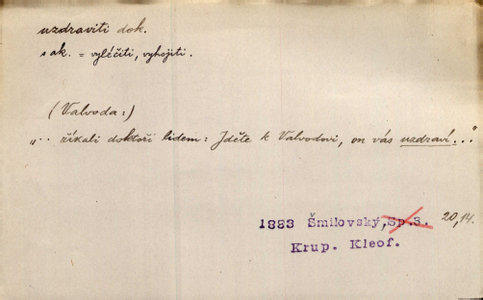 uzdraviti dok.
s ak. = vyléčiti, vyhojiti.
(Valvoda:)
„·· říkali doktoři lidem: Jděte k Valvodovi, on vás uzdraví..."
1883 Šmilovský, Sp.3. 20,14.
Krup. Kleof.